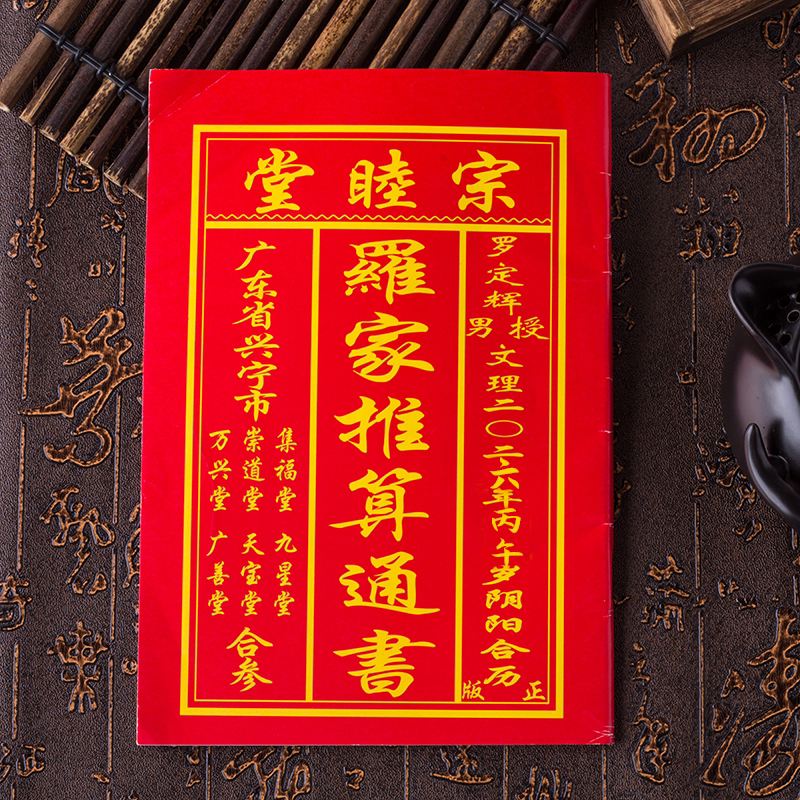 宗睦堂
罗定辉授男文理二〇二六年丙午岁阴阳合历
正版
羅家推算通書
广东省兴宁市
集福堂 九星堂
崇道堂 天宝堂
万兴堂 广善堂
合参